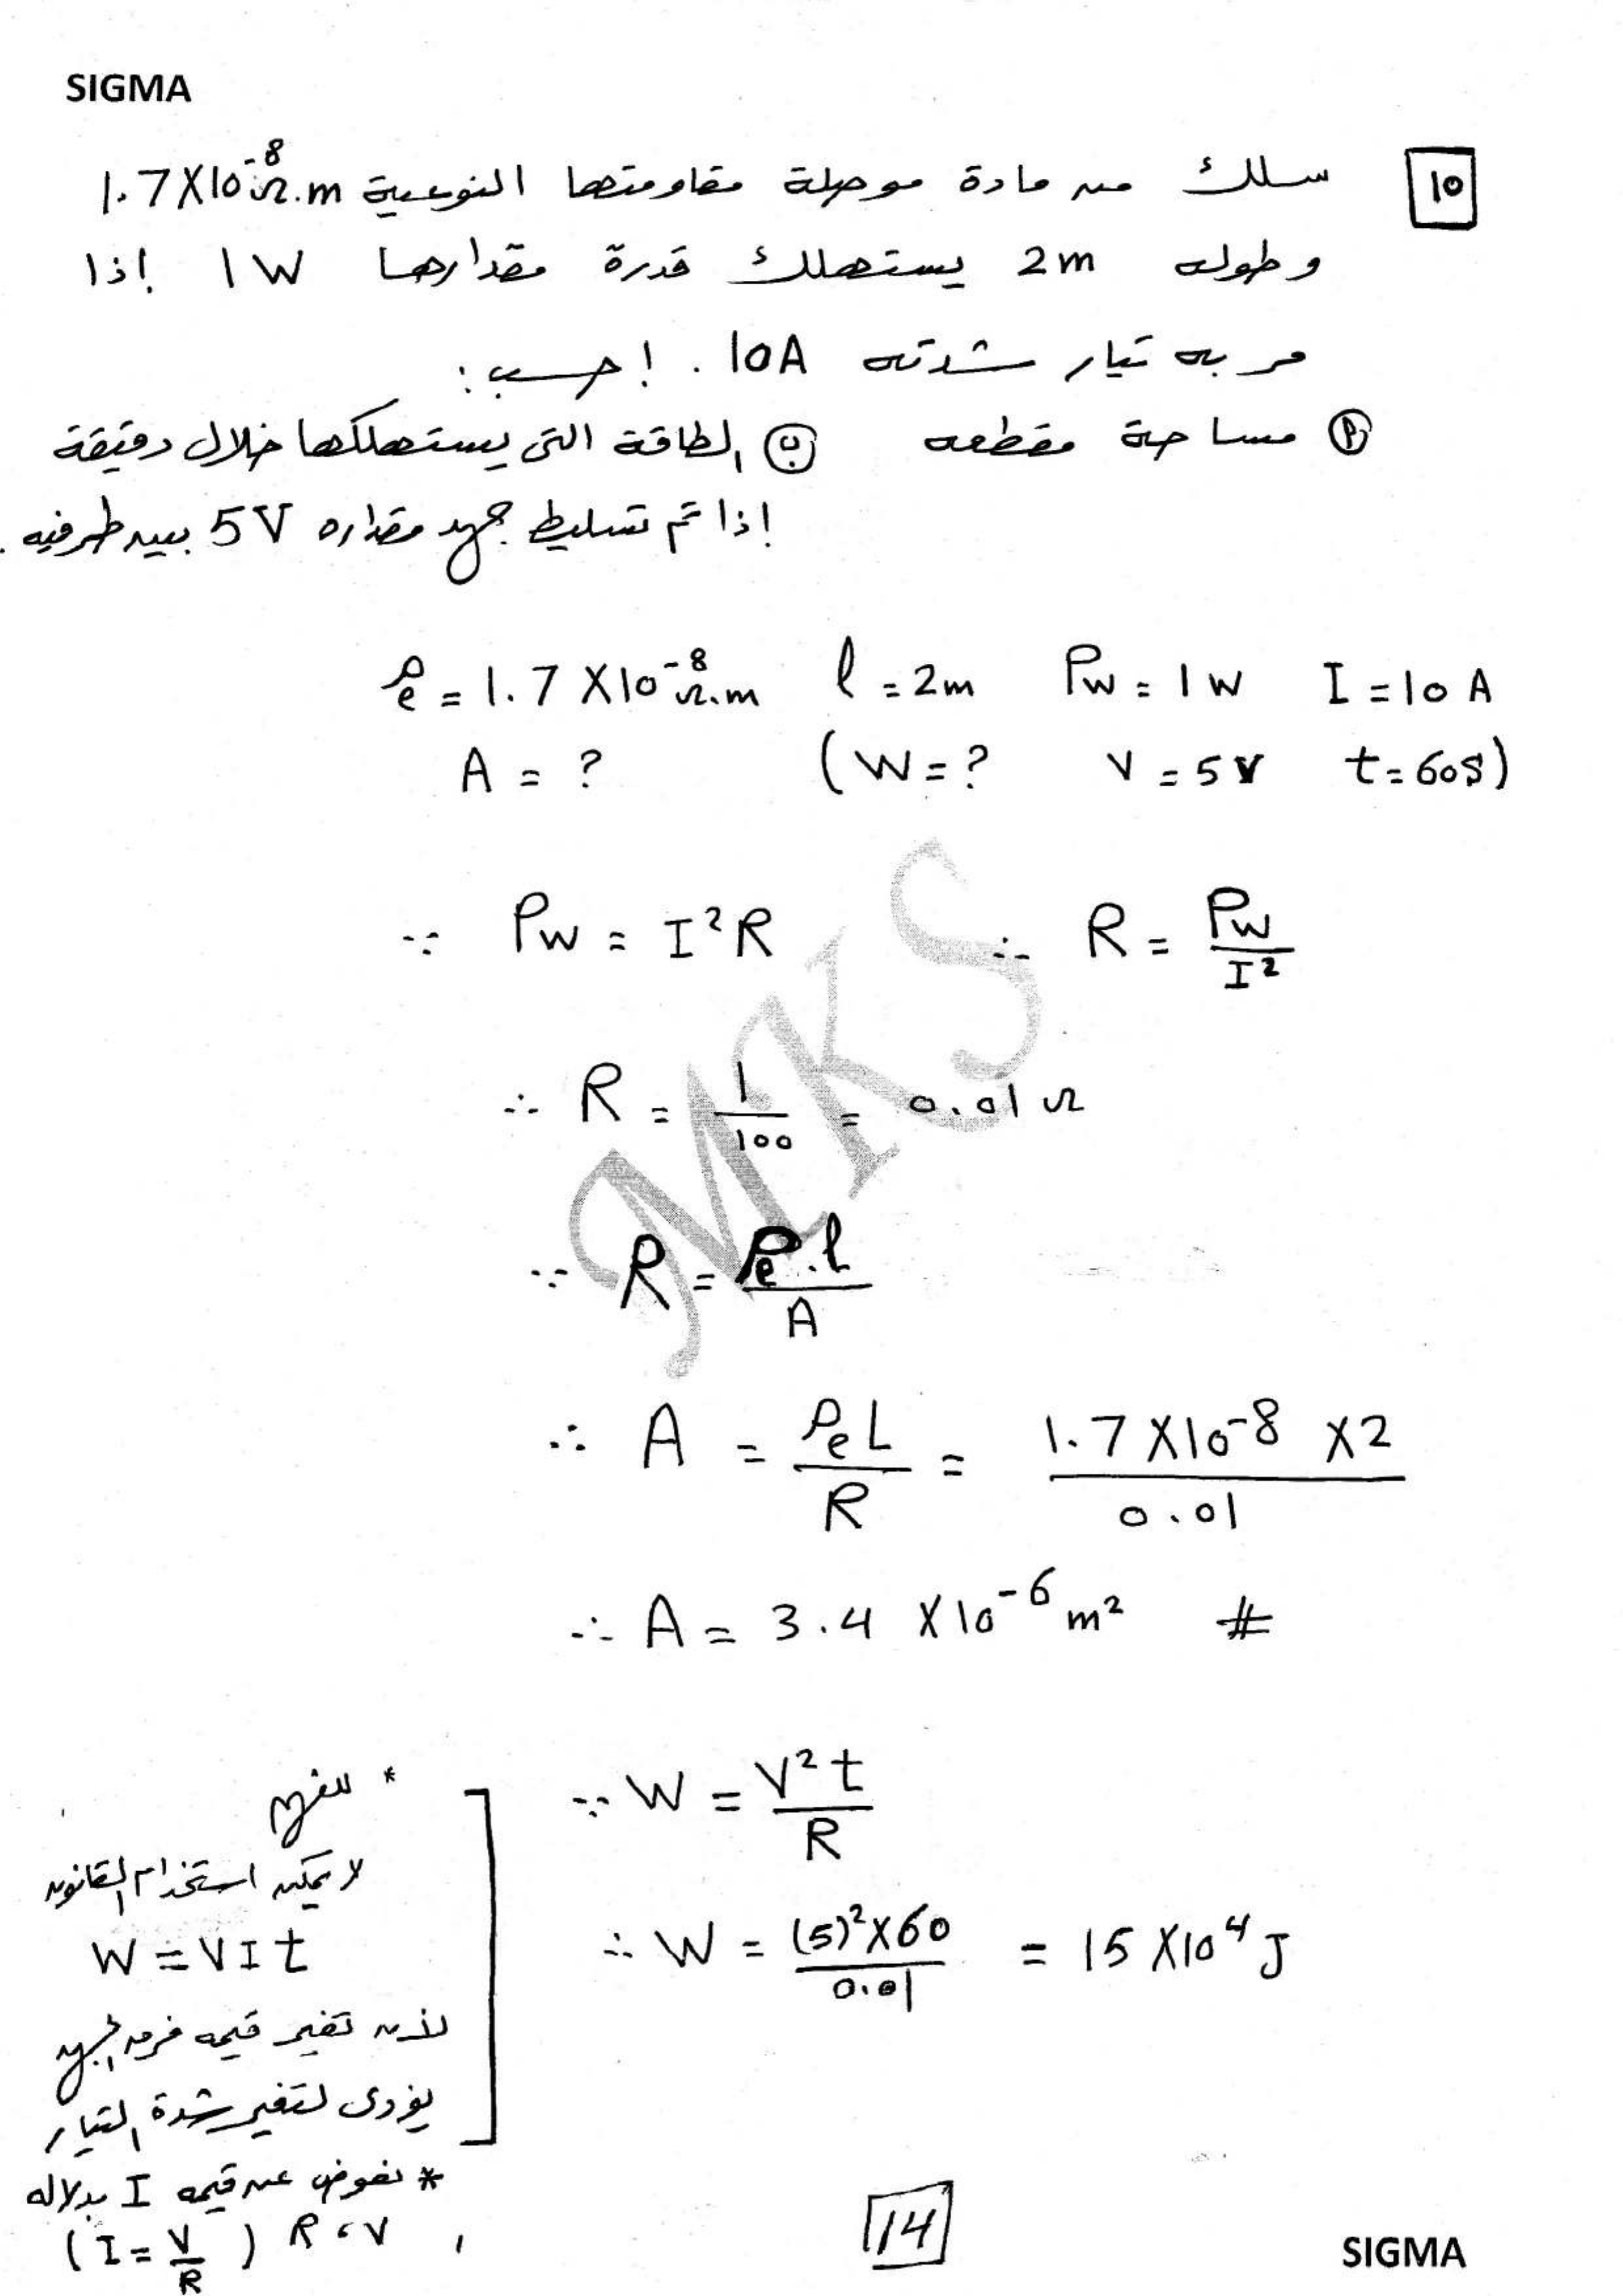 SIGMA
10 سلك من مادة موصلة مقاومتها النوعية 1.7X10⁻⁸Ω.m
وطوله 2m يستهلك قدرة مقدارها 1W إذا
مر به تيار شدته 10A . إحسب :
أ مساحة مقطعه ب الطاقة التى يستهلكها خلال دقيقة
إذا تم تسليط جهد مقداره 5V بين طرفيه .
ρe = 1.7 X10⁻⁸Ω.m l = 2m Pw = 1W I = 10A
A = ? (W = ? V = 5V t = 60S)
∵ Pw = I²R ∴ R = Pw/I²
∴ R = 1/100 = 0.01Ω
∵ R = ρe.l/A
∴ A = ρeL/R = 1.7X10⁻⁸ X2/0.01
∴ A = 3.4 X10⁻⁶ m² #
∵ W = V²t/R
∴ W = (5)²X60/0.01 = 15X10⁴ J
* للفهم
لا يمكن استخدام القانون
W = VIt
لأن تغير قيمه فرق الجهد
يؤدى لتغير شدة التيار
* نعوض عن قيمه I بدلاله
R ، V (I = V/R)
14
SIGMA
MKS